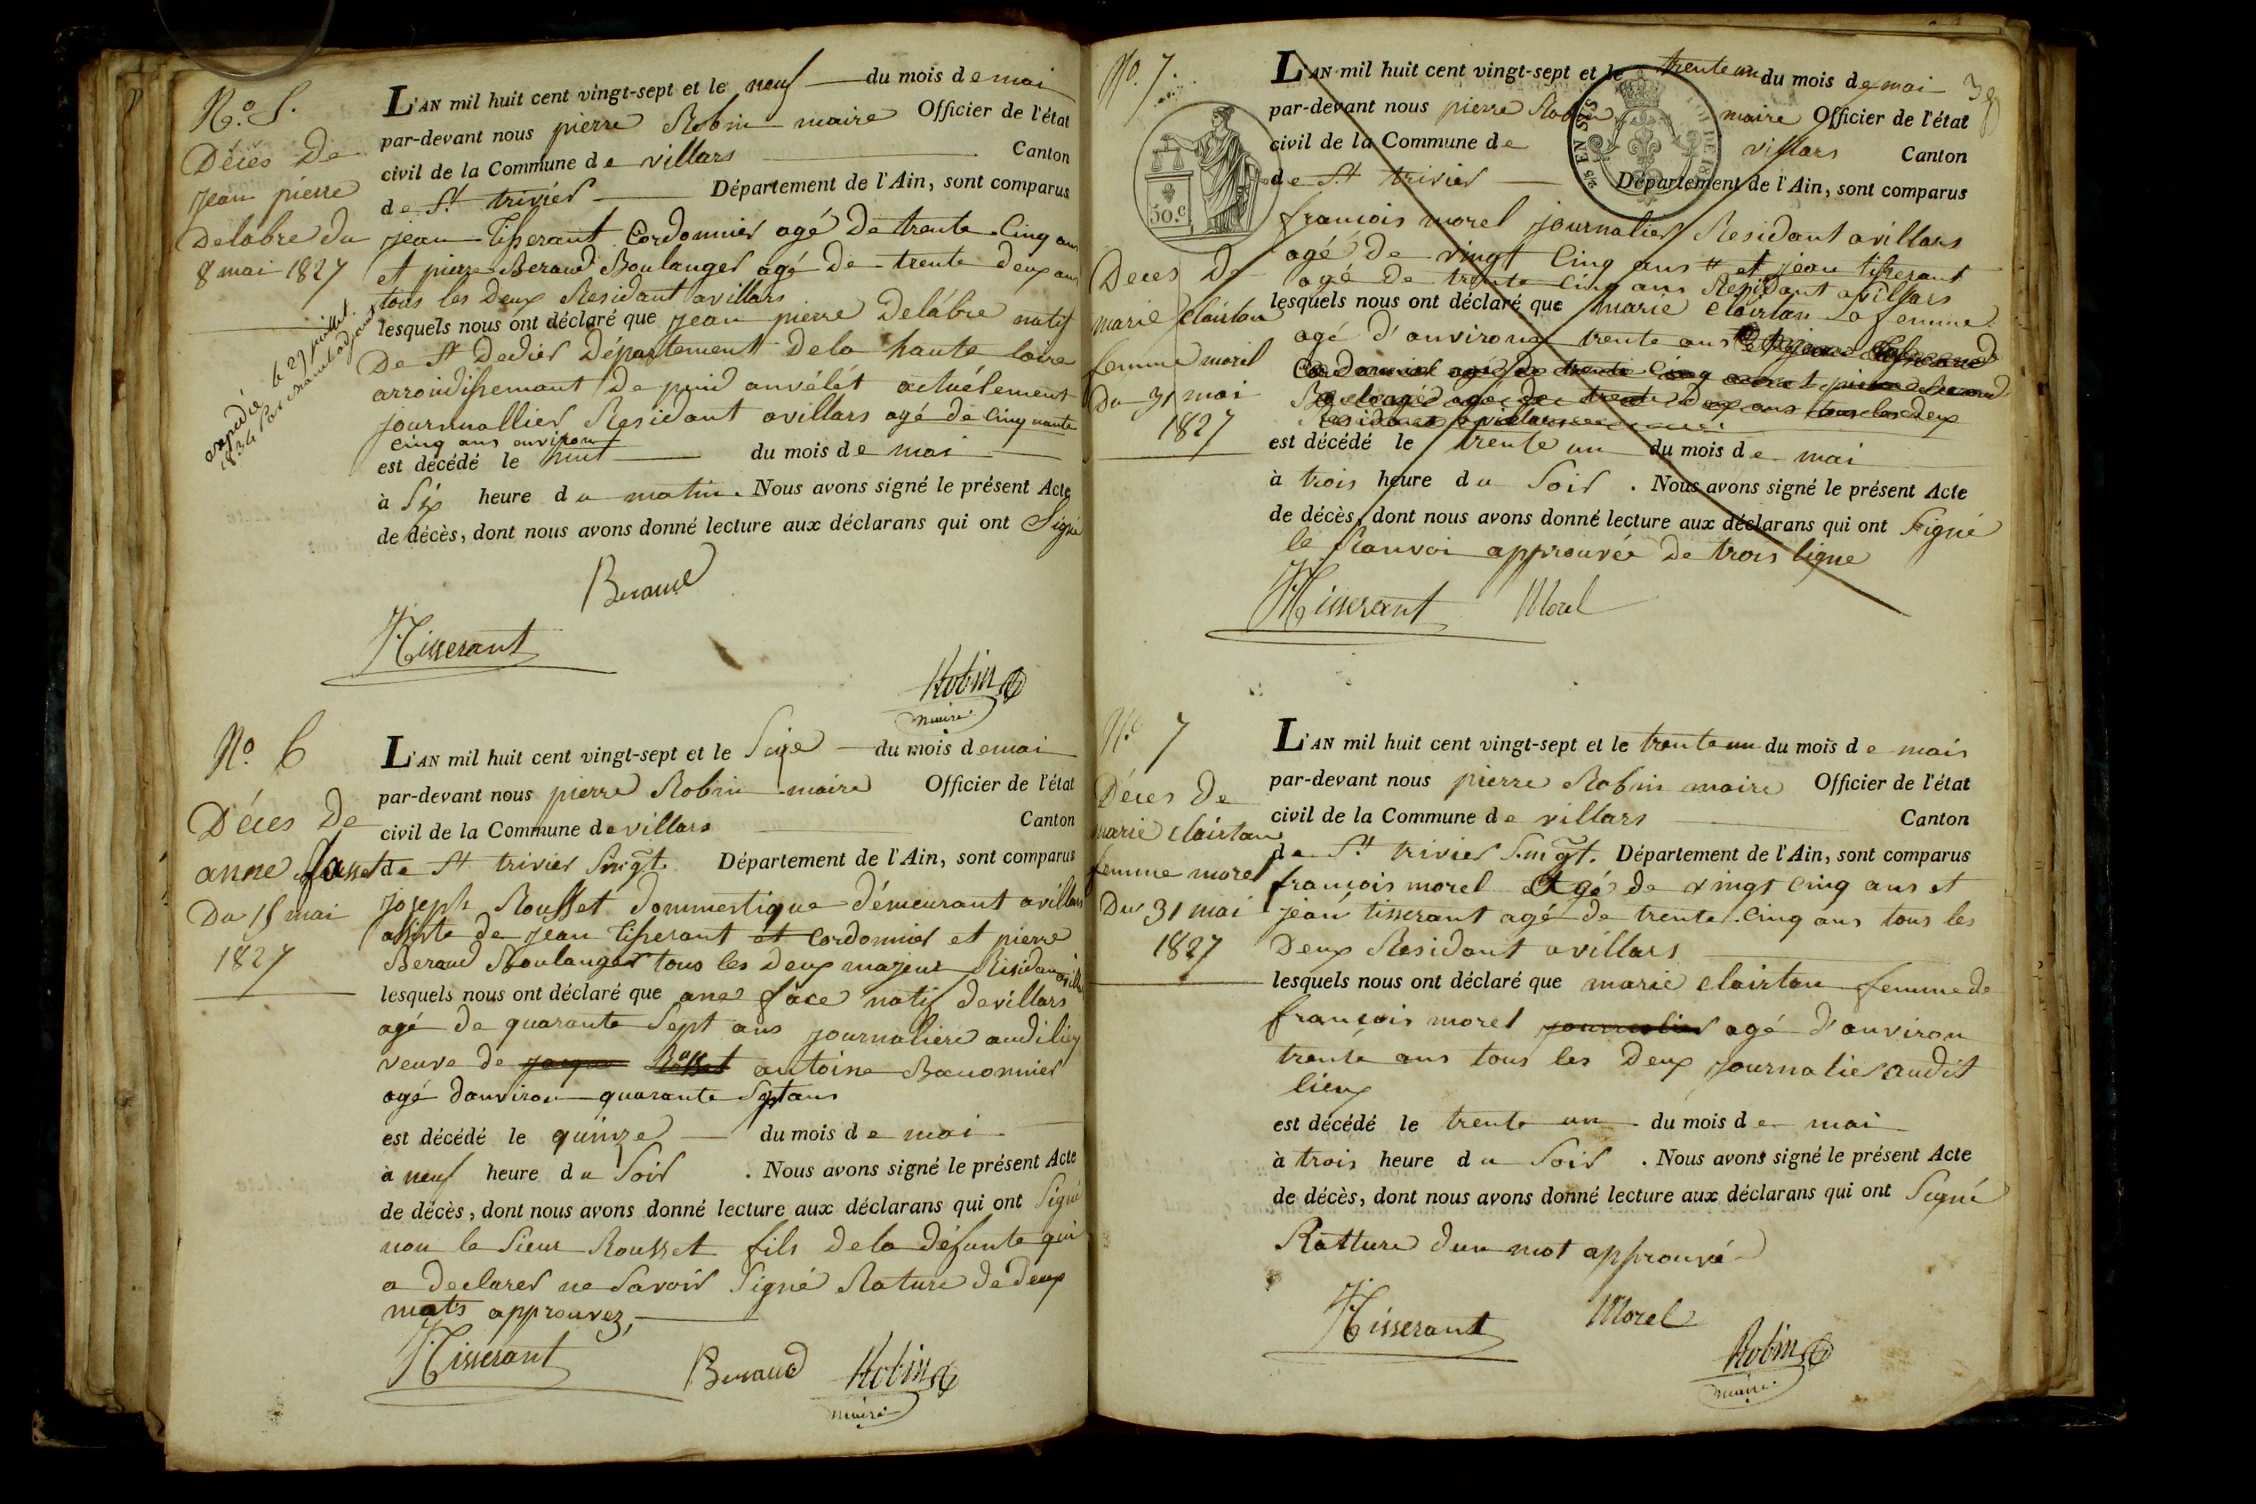 N.o 5.
Déces De
jean pierre
Delabre du
8 mai 1827
expedié le 29 juillet
1834
L'AN mil huit cent vingt-sept et le neuf du mois de mai
par-devant nous pierre Robin maire Officier de l'état
civil de la Commune de villars Canton
de St trivier Département de l'Ain, sont comparus
jean tisserant Cordonnier agé De trente Cinq ans
et pierre Beraud Boulanger agé de trente deux ans
tous les Deux Residant avillars
lesquels nous ont déclaré que jean pierre Delabre natif
De St Dedier Département dela haute loire
arrondissemant De puid anvélét actuélement
journnallier Residant avillars agé de Cinquante
Cinq ans anviron
est décédé le huit du mois de mai
à Six heure du matin. Nous avons signé le présent Acte
de décès, dont nous avons donné lecture aux déclarans qui ont Signé
Beraud
Tisserant
Robin
maire
N.o 6
Déces De
anne fasse
Du 15 mai
1827
L'AN mil huit cent vingt-sept et le Seize du mois de mai
par-devant nous pierre Robin maire Officier de l'état
civil de la Commune de villars Canton
de St trivier Smgt. Département de l'Ain, sont comparus
joseph Rousset Dommestique démeurant avillars
assisté de jean tisserant et Cordonnier et pierre
Beraud Boulanger tous les Deux majeur Residant
lesquels nous ont déclaré que ane face natif devillars
agé de quarante Sept ans journaliere audilieu
veuve de jaque Rosset antoine
agé danviron quarante Septans
est décédé le quinze du mois de mai
à neuf heure du Soir . Nous avons signé le présent Acte
de décès, dont nous avons donné lecture aux déclarans qui ont Signé
non le Sieur Rousset fils dela défunte qui
a declarer ne Savoir Signé Rature de deux
mots approuvez,
Tisserant
Beraud Robin
maire
N.o 7.
Deces De
marie clairtan
femme morel
Du 31 mai
1827
L'AN mil huit cent vingt-sept et le trente un du mois de mai
par-devant nous pierre Robin maire Officier de l'état
civil de la Commune de villars Canton
de St trivier Département de l'Ain, sont comparus
50.c
françois morel journalier Residant avillars
agé de vingt Cinq ans et jean tisserant
agé de trente Cinq ans Residant avillars
lesquels nous ont déclaré que marie clairtan Sa femme
agé d'anviron trente ans
Cordonnier agé de trente Cinq ans et pierre Beraud
Boulangé agé de trente Deux ans tous les Deux
Residant avillars
est décédé le trente un du mois de mai
à trois heure du Soir . Nous avons signé le présent Acte
de décès, dont nous avons donné lecture aux déclarans qui ont Signé
le Ranvoi approuvée De trois ligne
Tisserant Morel
N.o 7
Déces De
marie clairtan
femme morel
Du 31 mai
1827
L'AN mil huit cent vingt-sept et le trente un du mois de mais
par-devant nous pierre Robin maire Officier de l'état
civil de la Commune de villars Canton
de St trivier Smgt. Département de l'Ain, sont comparus
françois morel agé de vingt cinq ans et
jean tisserant agé de trente Cinq ans tous les
Deux Residant avillars
lesquels nous ont déclaré que marie clairtan femme de
françois morel journalier agé d'anviron
trente ans tous les Deux journalier audit
lieux
est décédé le trente un du mois de mai
à trois heure du Soir . Nous avons signé le présent Acte
de décès, dont nous avons donné lecture aux déclarans qui ont Signé
Ratture dun mot approuvé
Tisserant Morel
Robin
maire